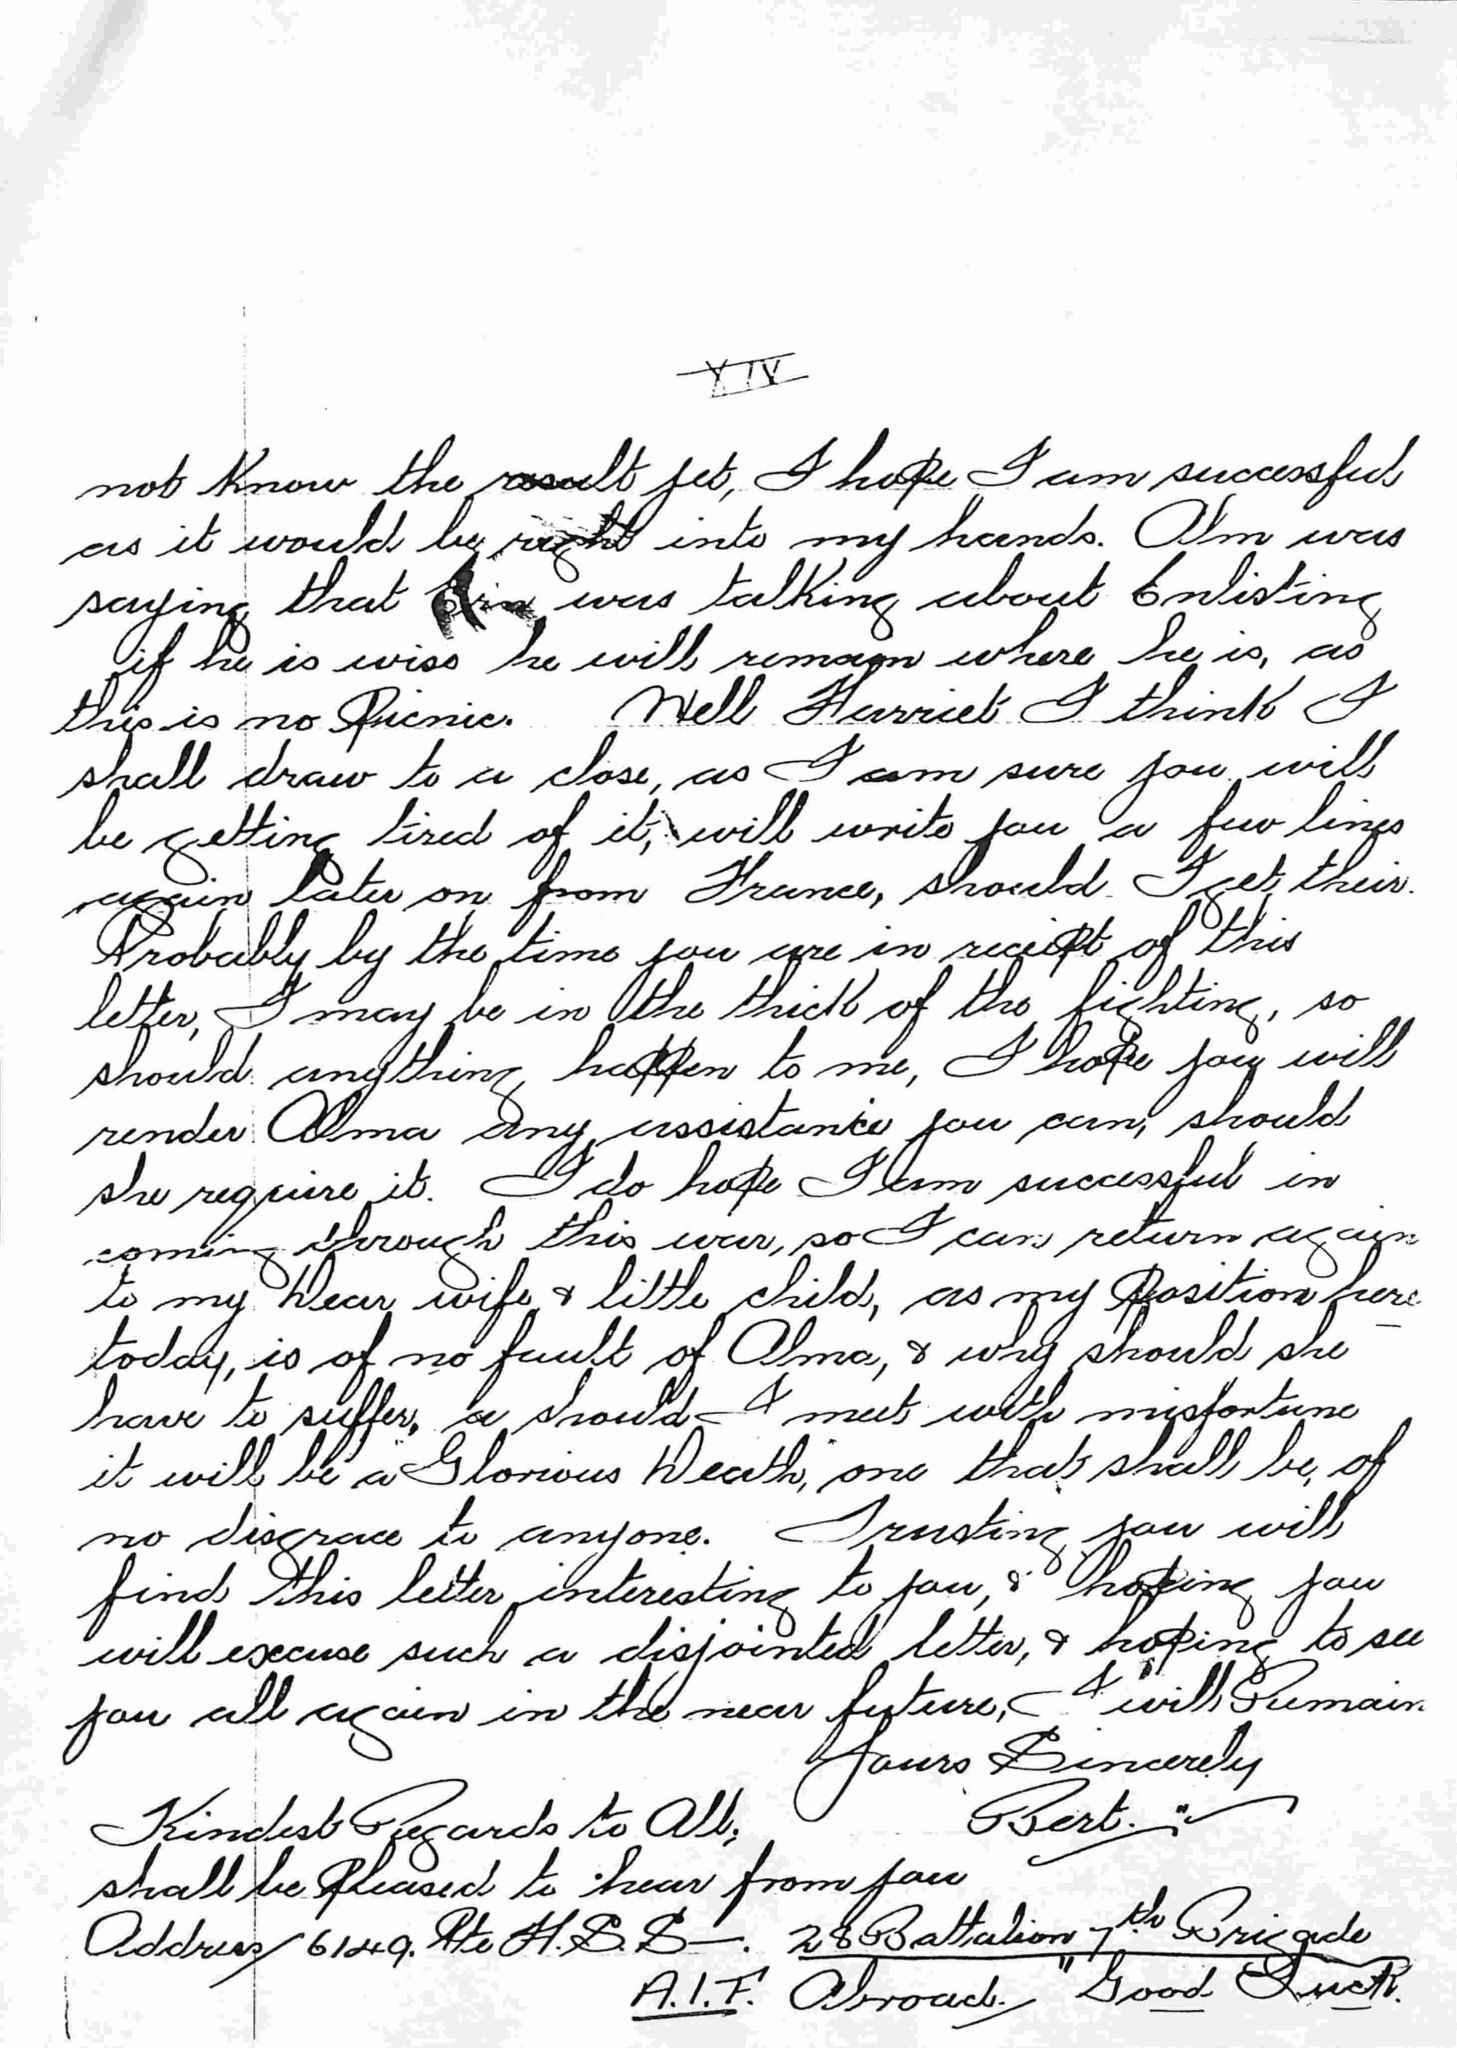 XIV
not Know the result yet, I hope I am successful
as it would be right into my hands. Alm was
saying that was talking about Enlisting
if he is wise he will remain where he is, as
this is no Picnic. Well Harriet I think I
shall draw to a close, as I am sure you will
be getting tired of it, will write you a few lines
again later on from France, should I get their.
Probably by the time you are in reciept of this
letter, I may be in the thick of the fighting, so
should anything happen to me, I hope you will
render Alma any assistance you can, should
she require it. I do hope I am successful in
coming through this war, so I can return again
to my Dear wife & little child, as my Position here
today, is of no fault of Alma, & why should she
have to suffer, a should I meet with misfortune
it will be a "Glorious Death", one that shall be of
no disgrace to anyone. Trusting you will
find this letter interesting to you, & hoping you
will excuse such a disjointed letter, & hoping to see
you all again in the near future, I will Remain
Yours Sincerely
Kindest Regards to All, Bert."
shall be Pleased to hear from you
Address/ 6149. Pte H.S.S—. 28 Battalion 7th Brigade
A.I.F. Abroad. "Good Luck.